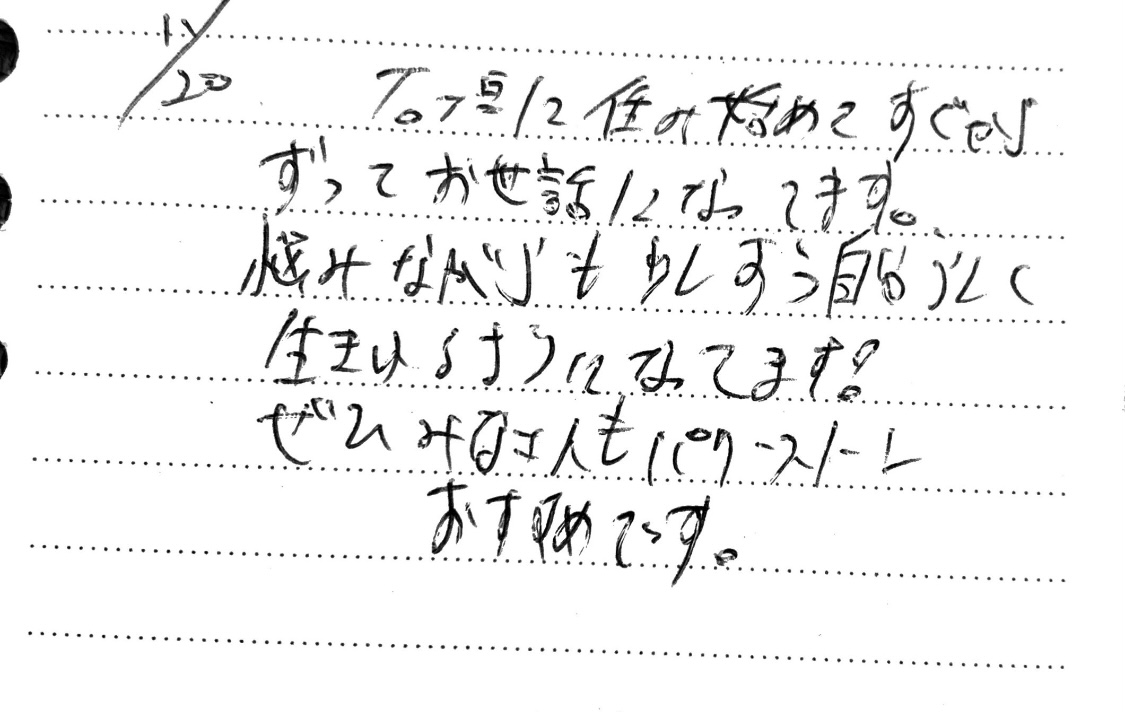 11/20
に住み始めてすぐから
ずっとお世話になってます。
悩みながらも少しずつ自分らしく
生きれるようになってます!
ぜひみなさんもパワーストーン
おすすめです。